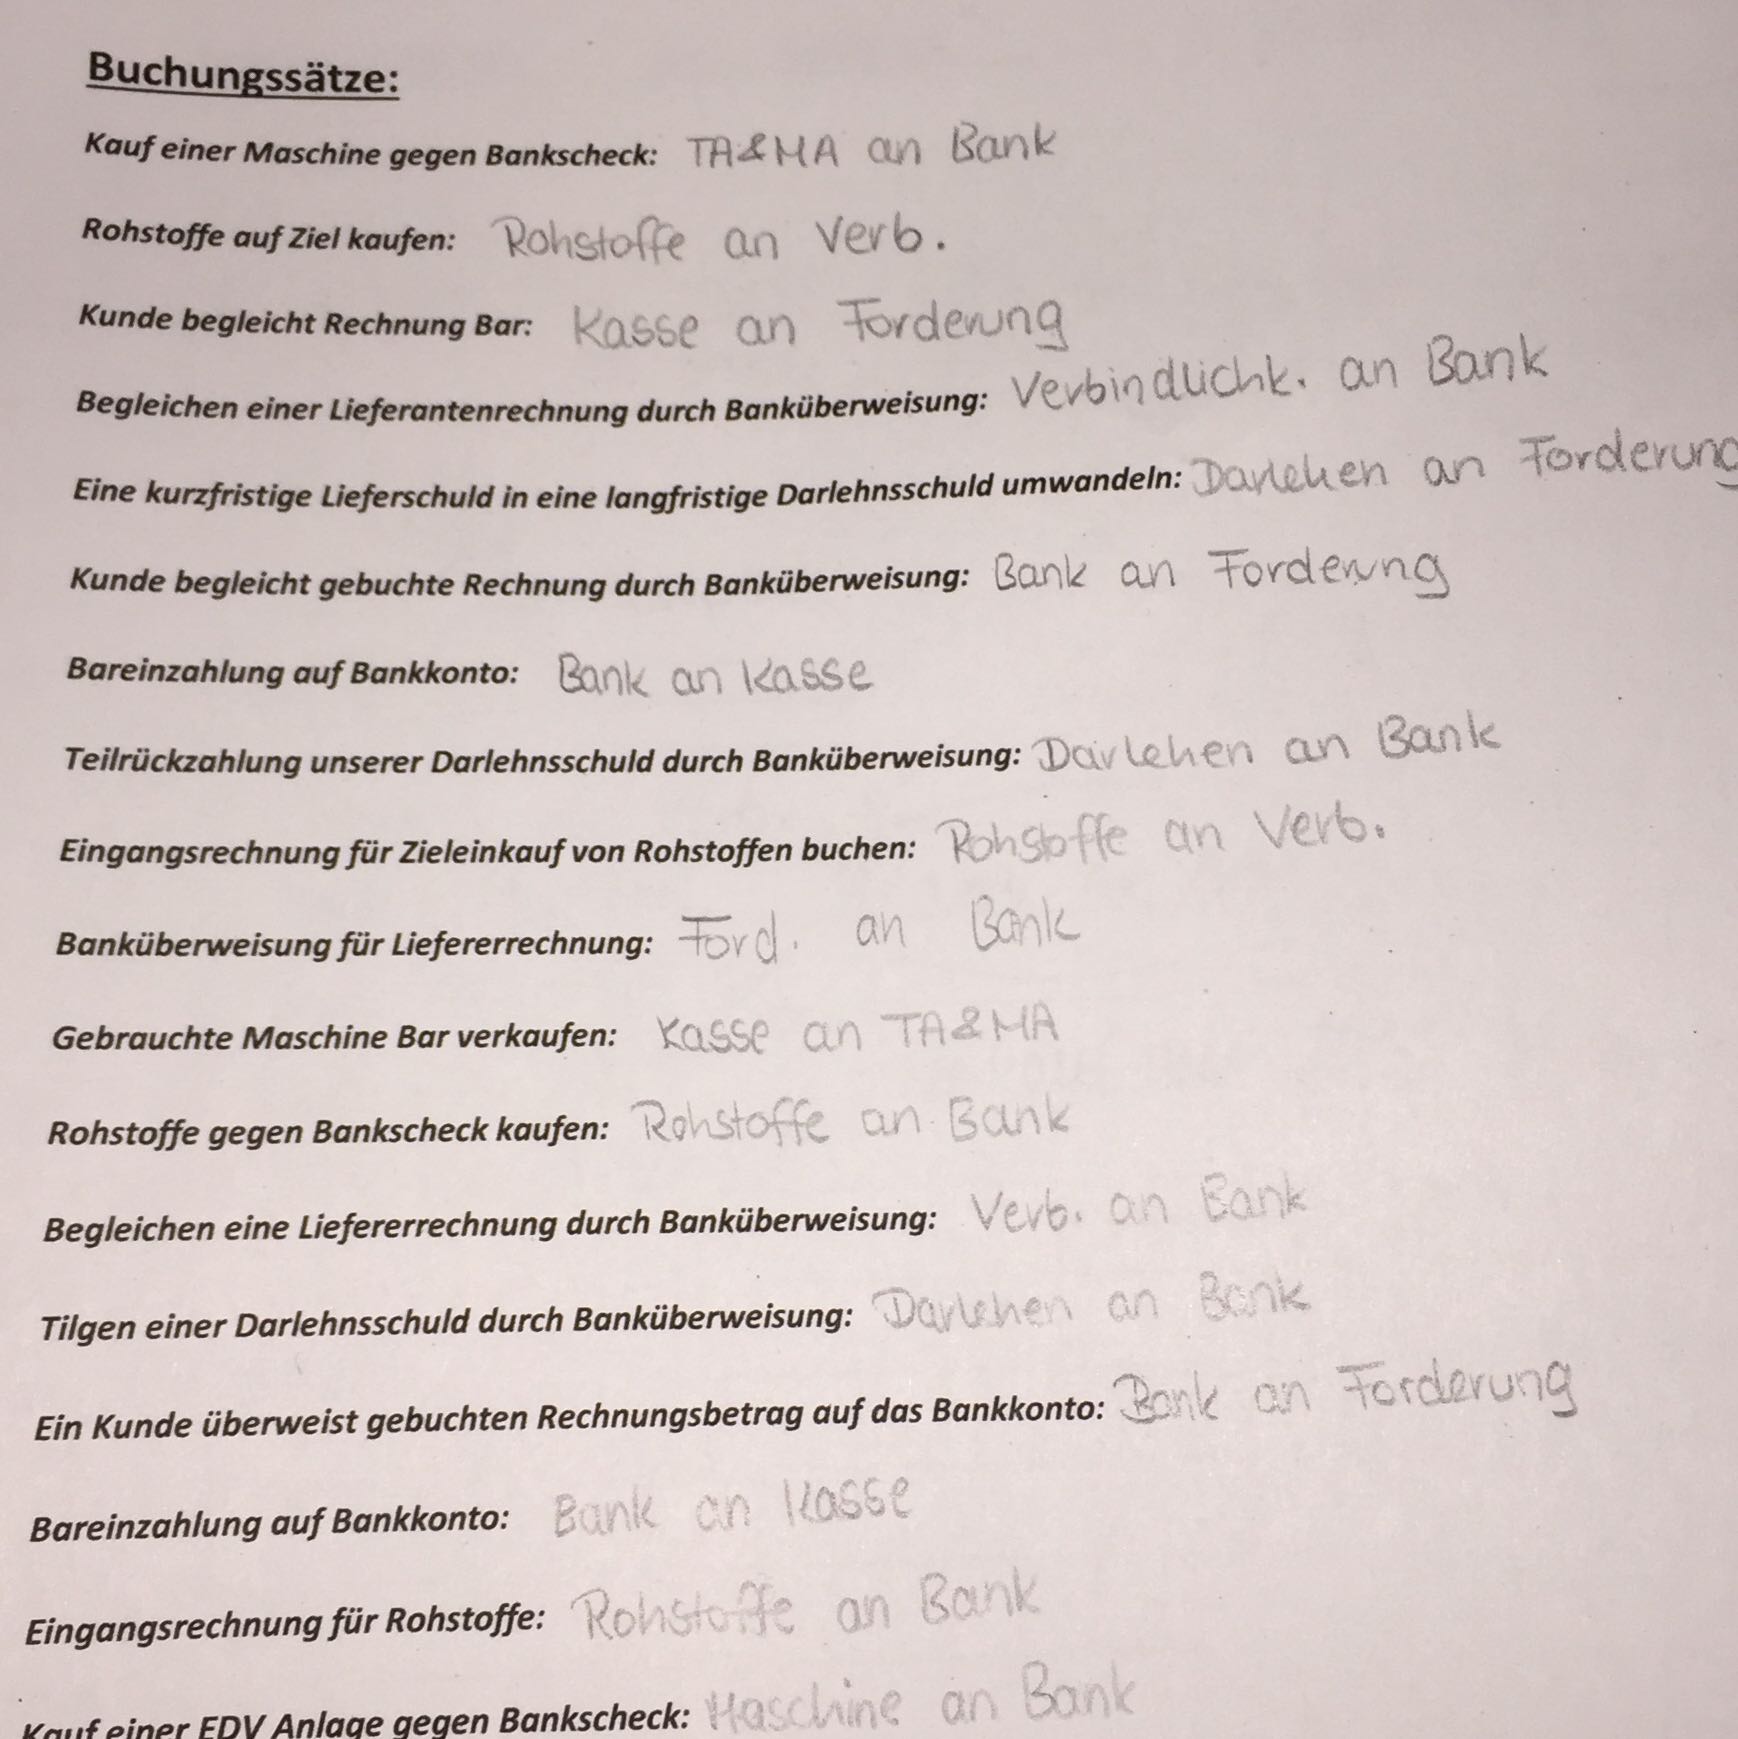 Buchungssätze:
Kauf einer Maschine gegen Bankscheck: TA&MA an Bank
Rohstoffe auf Ziel kaufen: Rohstoffe an Verb.
Kunde begleicht Rechnung Bar: Kasse an Forderung
Begleichen einer Lieferantenrechnung durch Banküberweisung: Verbindlichk. an Bank
Eine kurzfristige Lieferschuld in eine langfristige Darlehnsschuld umwandeln: Darlehen an Forderung
Kunde begleicht gebuchte Rechnung durch Banküberweisung: Bank an Forderung
Bareinzahlung auf Bankkonto: Bank an Kasse
Teilrückzahlung unserer Darlehnsschuld durch Banküberweisung: Darlehen an Bank
Eingangsrechnung für Zieleinkauf von Rohstoffen buchen: Rohstoffe an Verb.
Banküberweisung für Liefererrechnung: Ford. an Bank
Gebrauchte Maschine Bar verkaufen: Kasse an TA&MA
Rohstoffe gegen Bankscheck kaufen: Rohstoffe an Bank
Begleichen eine Liefererrechnung durch Banküberweisung: Verb. an Bank
Tilgen einer Darlehnsschuld durch Banküberweisung: Darlehen an Bank
Ein Kunde überweist gebuchten Rechnungsbetrag auf das Bankkonto: Bank an Forderung
Bareinzahlung auf Bankkonto: Bank an Kasse
Eingangsrechnung für Rohstoffe: Rohstoffe an Bank
Kauf einer EDV Anlage gegen Bankscheck: Maschine an Bank